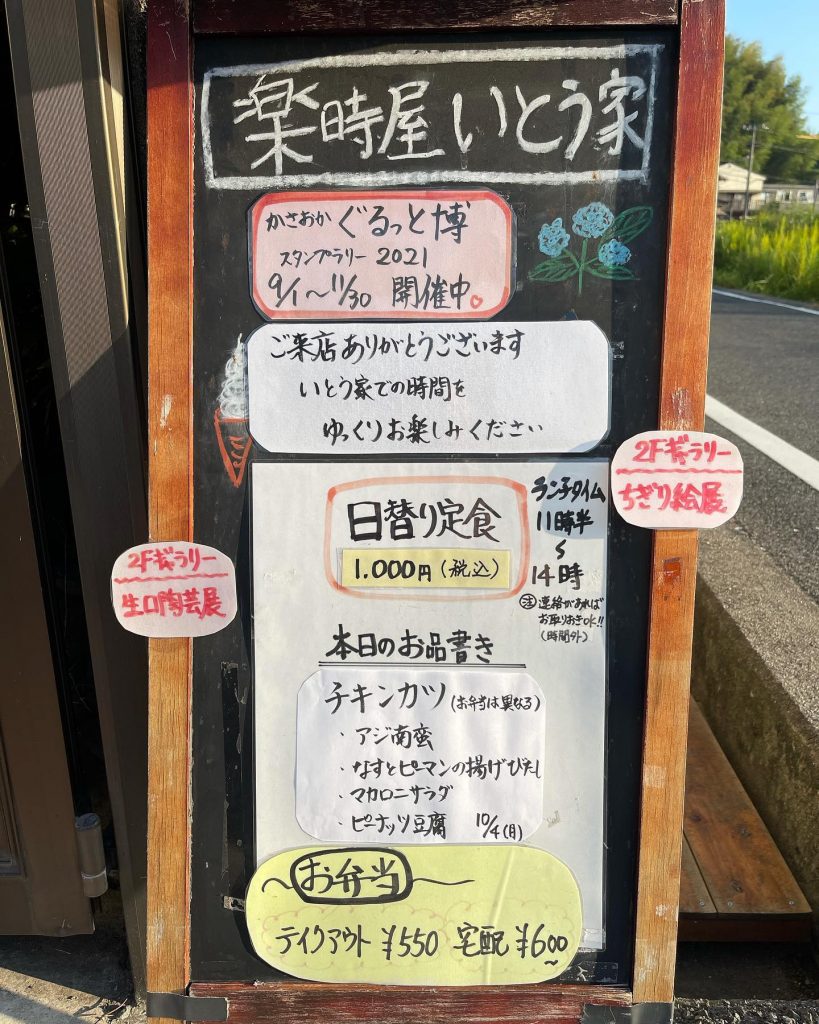 楽時屋 いとう家
かさおか ぐるっと博
スタンプラリー 2021
9/1〜11/30 開催中
ご来店ありがとうございます
いとう家での時間を
ゆっくりお楽しみください
2Fギャラリー
ちぎり絵展
日替り定食
1.000円(税込)
ランチタイム
11時半
〜
14時
注 連絡があれば
お取りおきOK!!
(時間外)
2Fギャラリー
生口陶芸展
本日のお品書き
チキンカツ(お弁当は異なる)
・アジ南蛮
・なすとピーマンの揚げびたし
・マカロニサラダ
・ピーナッツ豆腐 10/4(月)
〜お弁当〜
テイクアウト ¥550 宅配 ¥600〜